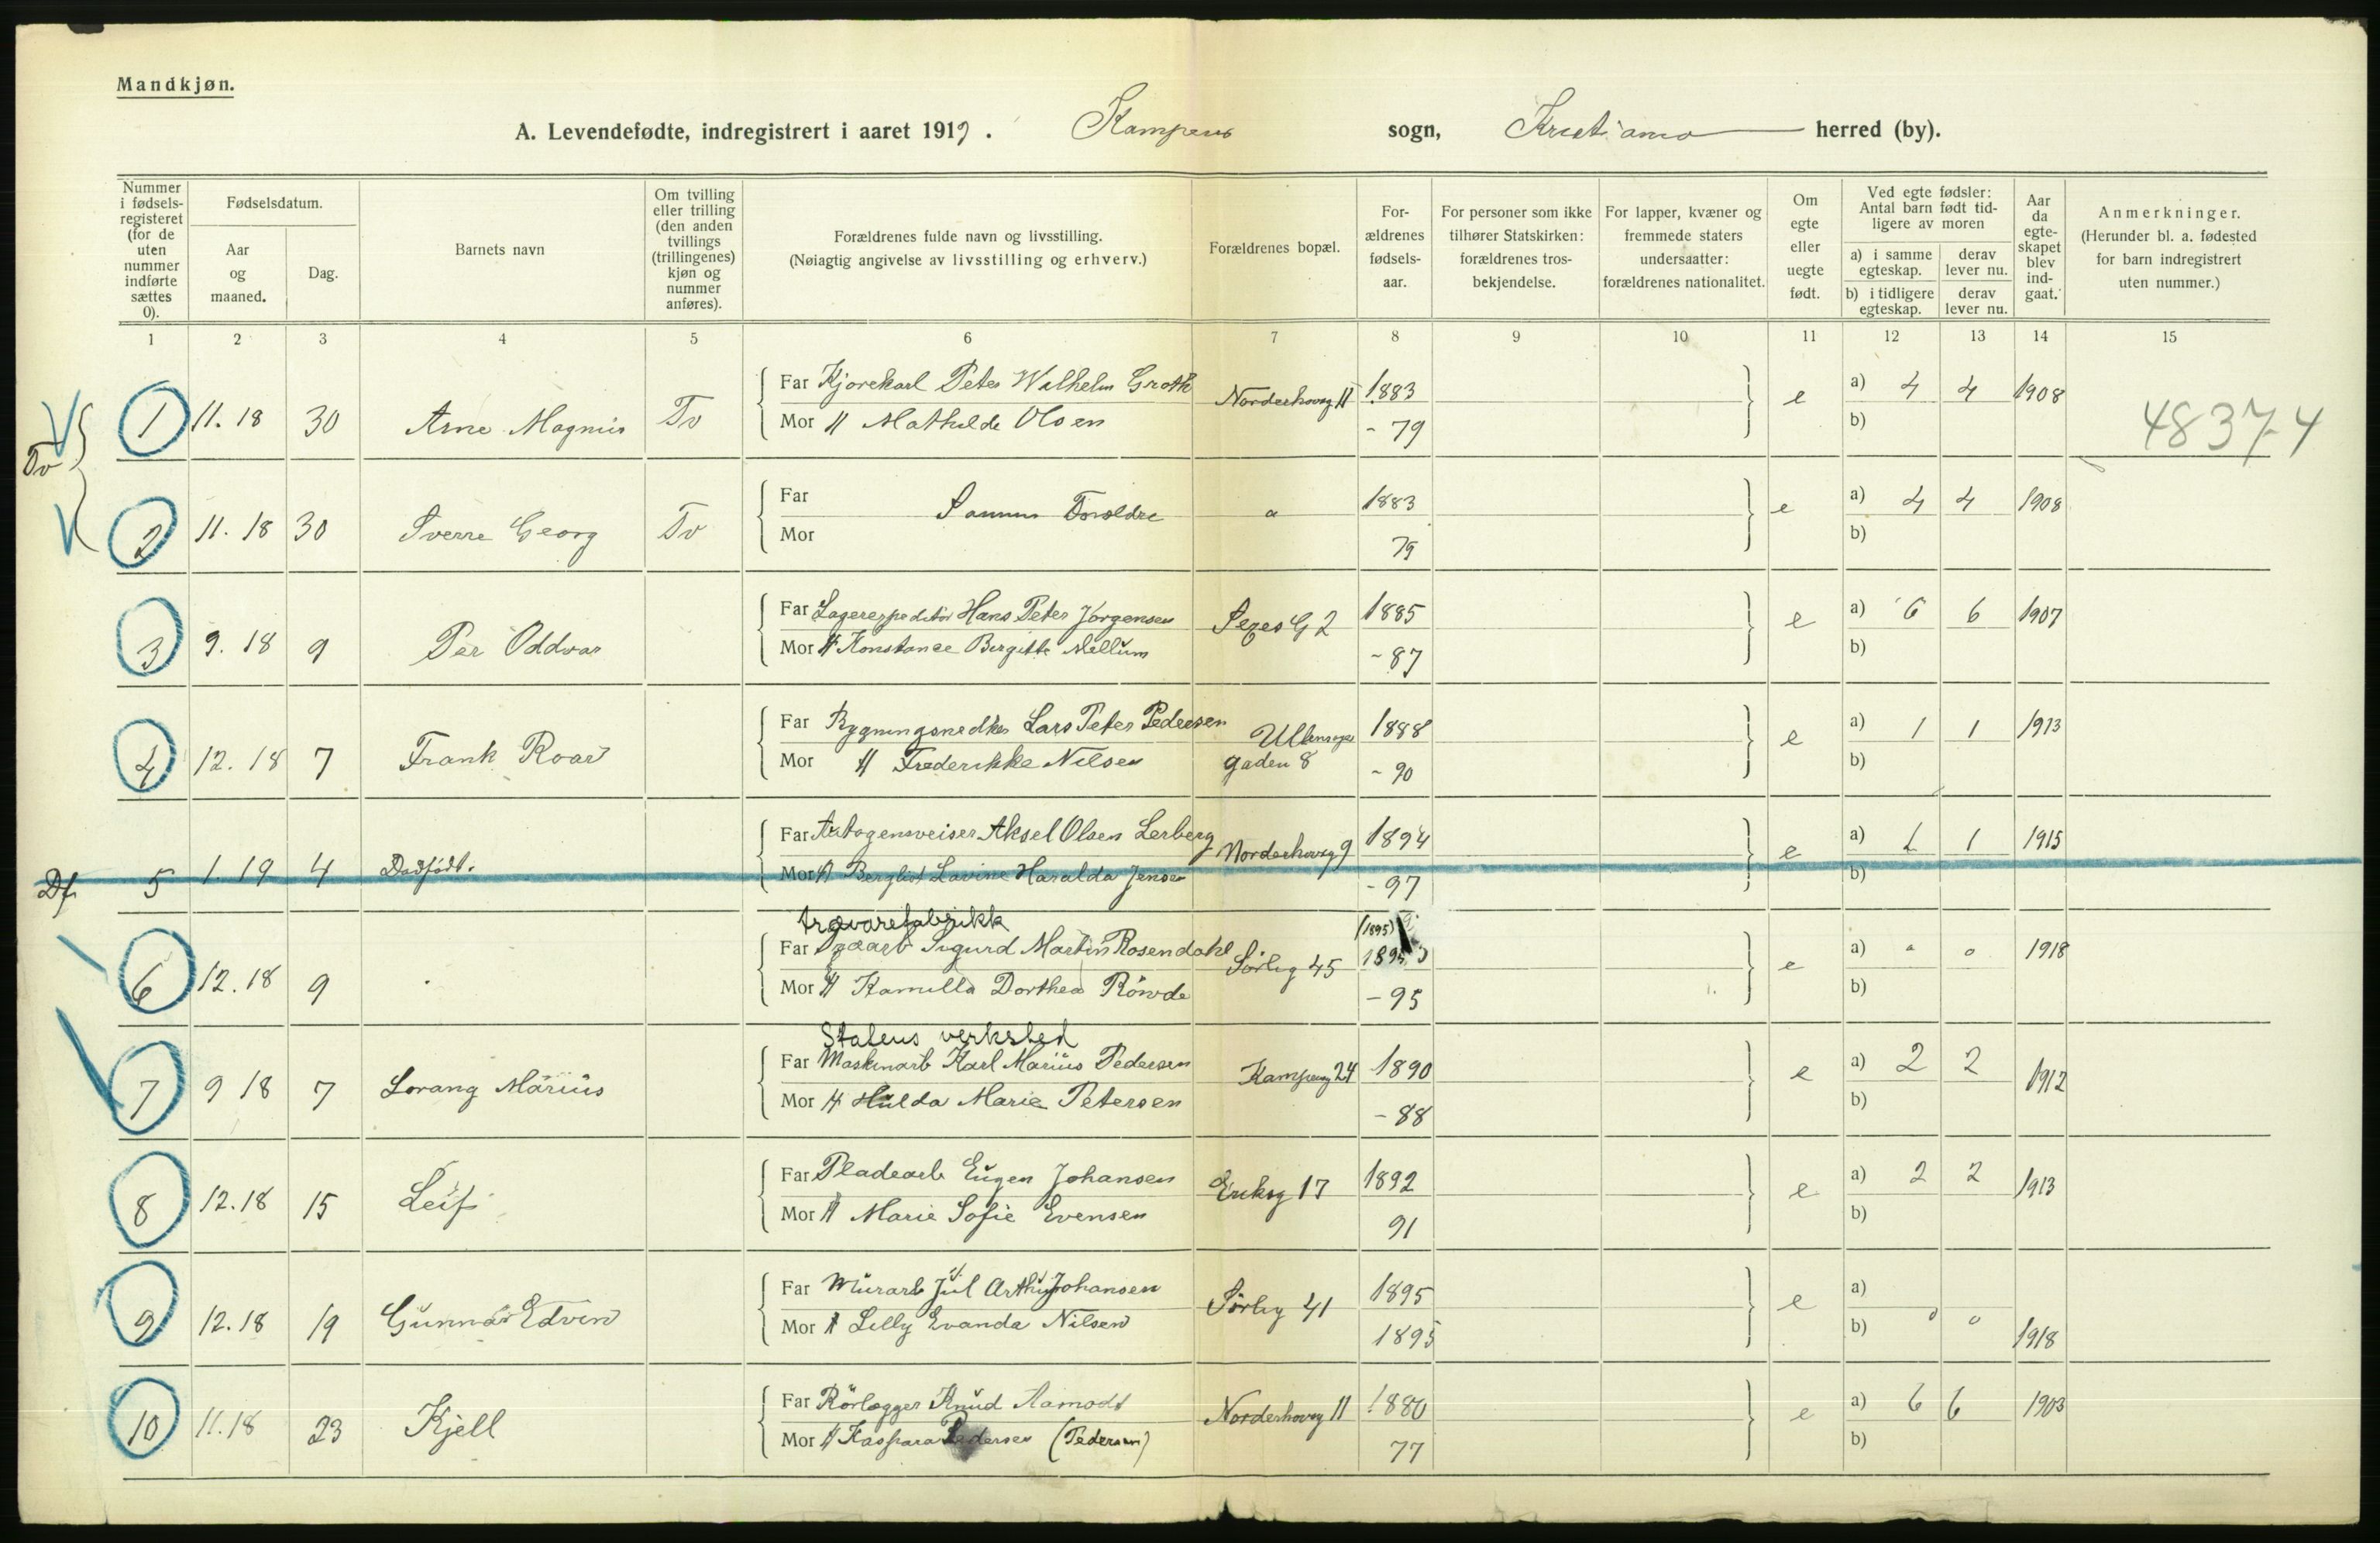 Mandkjøn.
A. Levendefødte, indregistrert i aaret 1919. Kampens sogn, Kristiania herred (by).
Nummer i fødsels-registeret (for de uten nummer indførte sættes 0).
Fødselsdatum.
Aar og maaned.
Dag.
Barnets navn
Om tvilling eller trilling (den anden tvillings (trillingenes) kjøn og nummer anføres).
Forældrenes fulde navn og livsstilling.
(Nøiagtig angivelse av livsstilling og erhverv.)
Forældrenes bopæl.
For-ældrenes fødsels-aar.
For personer som ikke tilhører Statskirken: forældrenes tros-bekjendelse.
For lapper, kvæner og fremmede staters undersaatter: forældrenes nationalitet.
Om egte eller uegte født.
Ved egte fødsler: Antal barn født tid-ligere av moren
a) i samme egteskap.
derav lever nu.
b) i tidligere egteskap.
derav lever nu.
Aar da egte-skapet blev ind-gaat.
Anmerkninger.
(Herunder bl. a. fødested for barn indregistrert uten nummer.)
1 2 3 4 5 6 7 8 9 10 11 12 13 14 15
Tv
1 11.18 30 Arne Magnus Tv Far Kjørekarl Peter Wilhelm Groth Norderhovsg 11 1883 e a) 4 4 1908
Mor Mathilde Olsen - 79 b)
48374
2 11.18 30 Sverre Georg Tv Far Samme Forældre 1883 e a) 4 4 1908
Mor 79 b)
3 9.18 9 Per Oddvar Far Lagerexpeditør Hans Peter Jörgensen Sexes G 2 1885 e a) 6 6 1907
Mor Konstance Birgitte Mellum - 87 b)
4 12.18 7 Frank Roar Far Bygningsnedker Lars Peter Pedersen Ullensager gaden 8 1888 e a) 1 1 1913
Mor Frederikke Nilsen - 90 b)
Df. 5 1.19 4 Dødfødt. Far Autogensveiser Aksel Olsen Lerberg Norderhovsg 9 1894 e a) 1 1 1915
Mor Bergliot Lovine Haralda Jensen - 97 b)
trævarefabrikk (1895)
6 12.18 9 Far Sigurd Martin Rosendahl Sörlig 45 1895 e a) 0 0 1918
Mor Kamilla Dorthea Rönde - 95 b)
Statens verksted
7 9 18 7 Lorang Marius Far Maskinarb Karl Marius Pedersen Kampensg 24 1890 e a) 2 2 1912
Mor Hulda Marie Petersen - 88 b)
8 12.18 15 Leif Far Pladearb Eugen Johansen Eriksg 17 1892 e a) 2 2 1913
Mor Marie Sofie Evensen 91 b)
9 12.18 19 Gunnar Edvin Far Murarb Jul Arthur Johansen Sörlig 41 1895 e a)
Mor Lilly Evanda Nilsen 1895 b) 0 0 1918
10 11.18 23 Kjell Far Rörlægger Knud Aamodt Norderhovsg 11 1880 e a) 6 6 1903
Mor Kaspara Pedersen (Pedersen) 77 b)